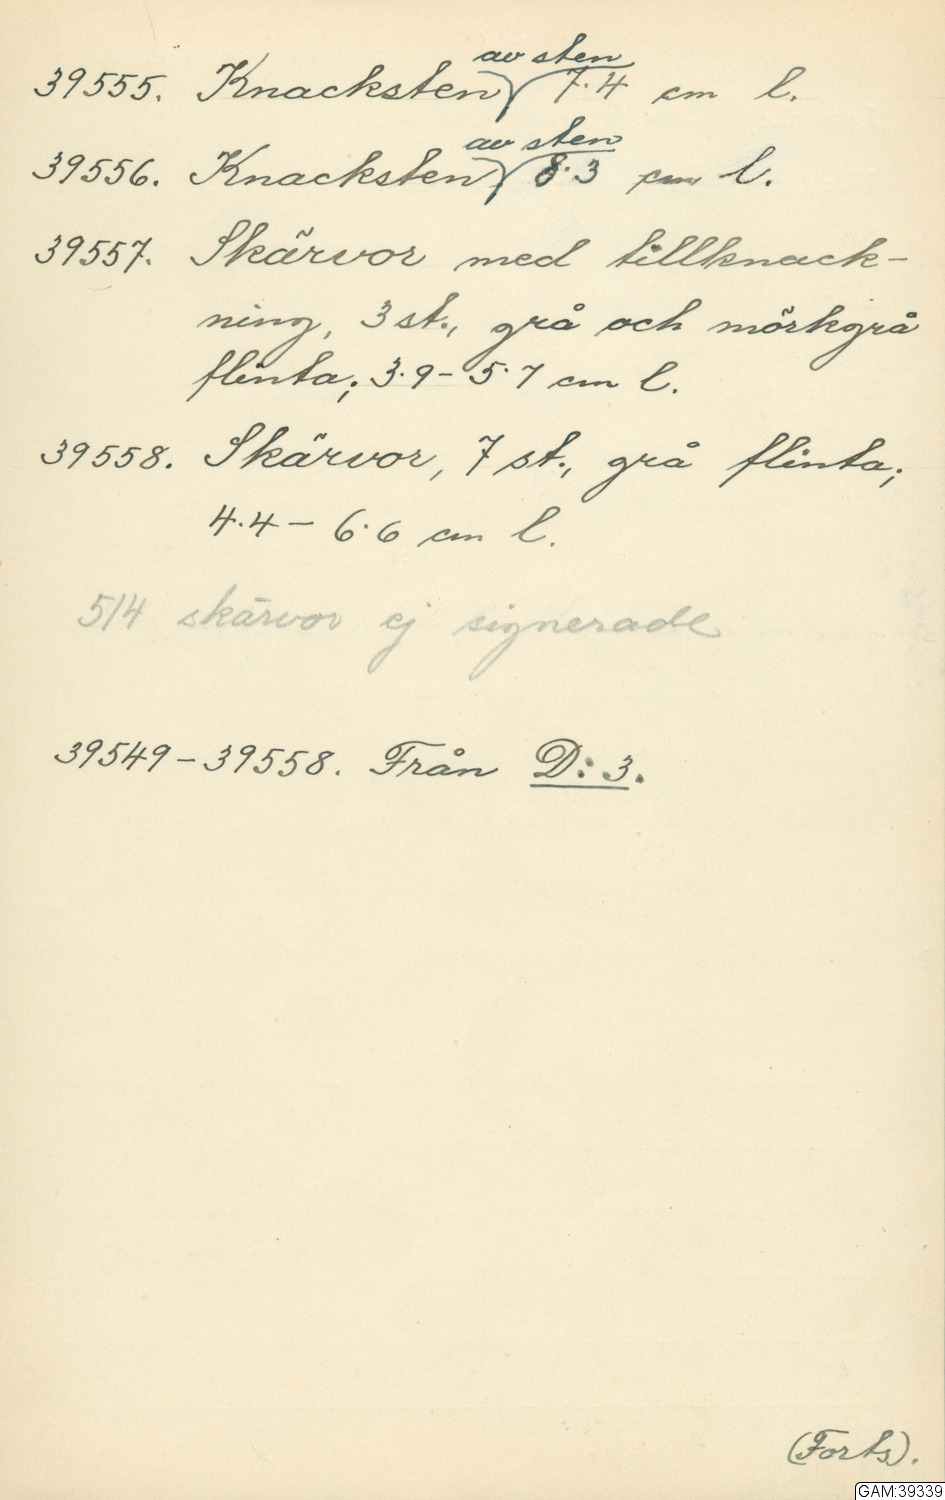 av sten
39555. Knacksten 7.4 cm l.
av sten
39556. Knacksten 8.3 cm l.
39557. Skärvor med tillknack-
ning, 3 st., grå och mörkgrå
flinta; 3.9-5.7 cm l.
39558. Skärvor, 7 st., grå flinta;
4.4-6.6 cm l.
514 skärvor ej signerade
39549-39558. Från D:3.
(Forts).
GAM:39339